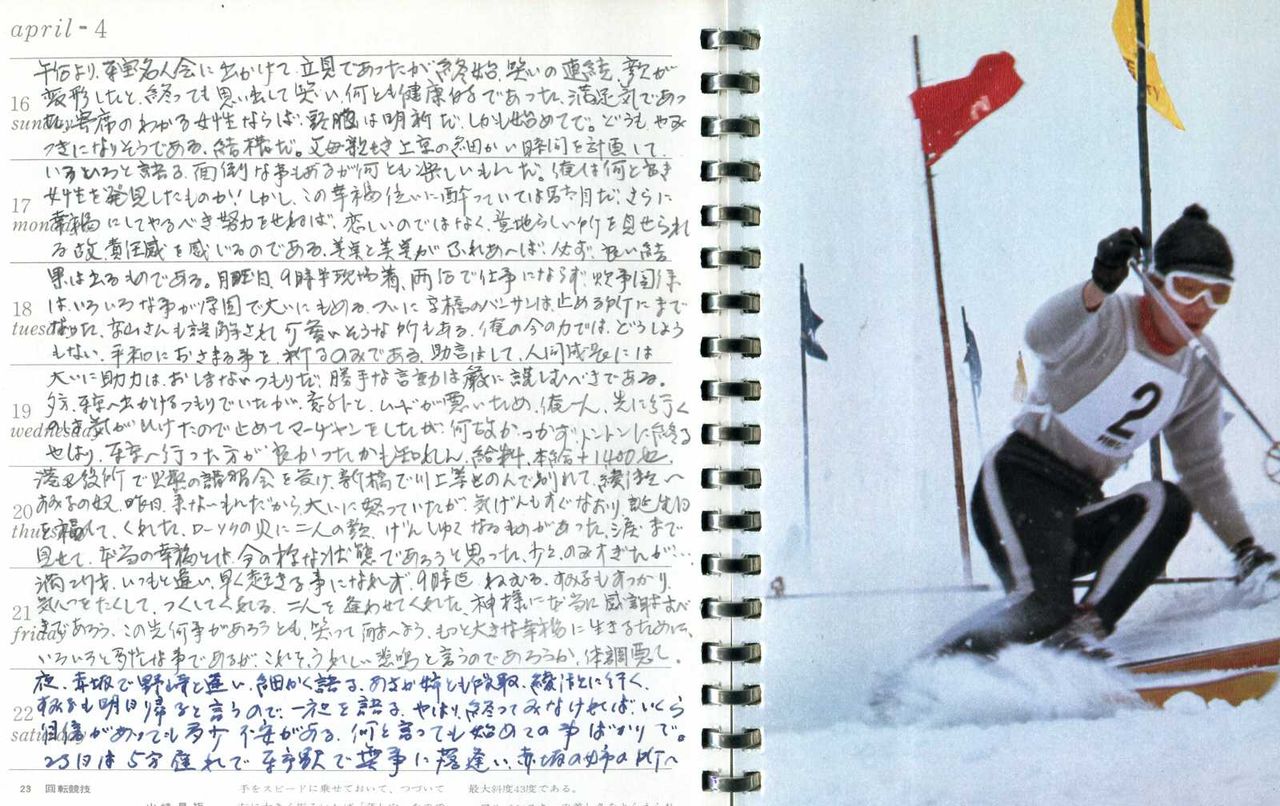 april-4
午后より、東宝名人会に出かけて、立見であったが、終始、笑いの連続、顔が
16 変形したと、終っても思い出して笑い、何とも健康的であった、満足気であっ
sunday 寄席のわかる女性ならば、頭脳は明析だ、しかも始めてで。どうも、やみ
つきになりそうである、結構だ。父母親せき上京の細かい時間を計画して
いろいろと語る、面倒な事もあるが何とも楽しいもんだ。俺は何と良き
17 女性を発見したものか!しかし、この幸福位いに酔っていては駄目だ!さらに
monday 幸福にしてやるべき努力をせねば、悲しいのではなく、意地らしい所を見せられ
る故、責任感を感じるのである、善菜と善菜がふれあへば、必ず、良い結
果は出るものである。月曜日、9時半現場着、雨后で仕事にならず、炊事関係
18 は、いろいろな事が原因で大いにもめる、ついに のバーサンは、止める所にまで
tuesday なった、 さんも誤解されて可愛いそうな所もある、俺の今の力では、どうしよう
もない、平和におさまる事を、祈るのみである、助言はして、人間成長には
大いに助力は、おしまないつもりだ、勝手な言動は厳に謹しむべきである。
19 夕方、東京へ出かけるつもりでいたが、意外と、ムードが悪いため、俺一人、先に行く
wednesday のも気がひけたので止めてマージャンをしたが、何故かつかず、トントンに終る
やはり、東京へ行った方が良かったかも知れん、給料、本給+1400也、
港区役所で の講習会を受け、新橋で川上等とのんで別れて、綾 へ
20 すみ子の奴、昨日、来なーもんだから大いに怒っていたが、気げんもすぐなおり、誕生日
thursday を祝福して、くれた、ローソクの火に二人の顔、げんしゅくなるものがあった、涙まで
見せて、本当の幸福とは、今の様な状態であろうと思った、少々のみすぎたが…
満つり才、いつもと違い、早く起きる事になれず、9時迄ねむる、すみ子もすっかり
21 気いつをたくして、つくしてくれる、二人を逢わせてくれた、神様に本当に感謝すべ
friday きであろう、この先何事があろうとも、笑って耐へよう、もっと大きな幸福に生きるために、
いろいろと多忙な事であるが、これを、うれしい悲鳴と言うのであろうか、体調悪し。
夜、赤坂で野崎と逢い、細かく語る、あさか姉とも 、綾 に行く、
22 すみ子も明日帰ると言うので、一 を語る、やはり、終ってみなければ、いくら
saturday 自信があっても多少不安がある、何と言っても始めての事ばかりで。
23日は5分遅れで東京駅で無事に落逢い、赤坂の姉の所へ
23 回転競技 手をスピードに乗せておいて、つづいて 最大斜度43度である。
2